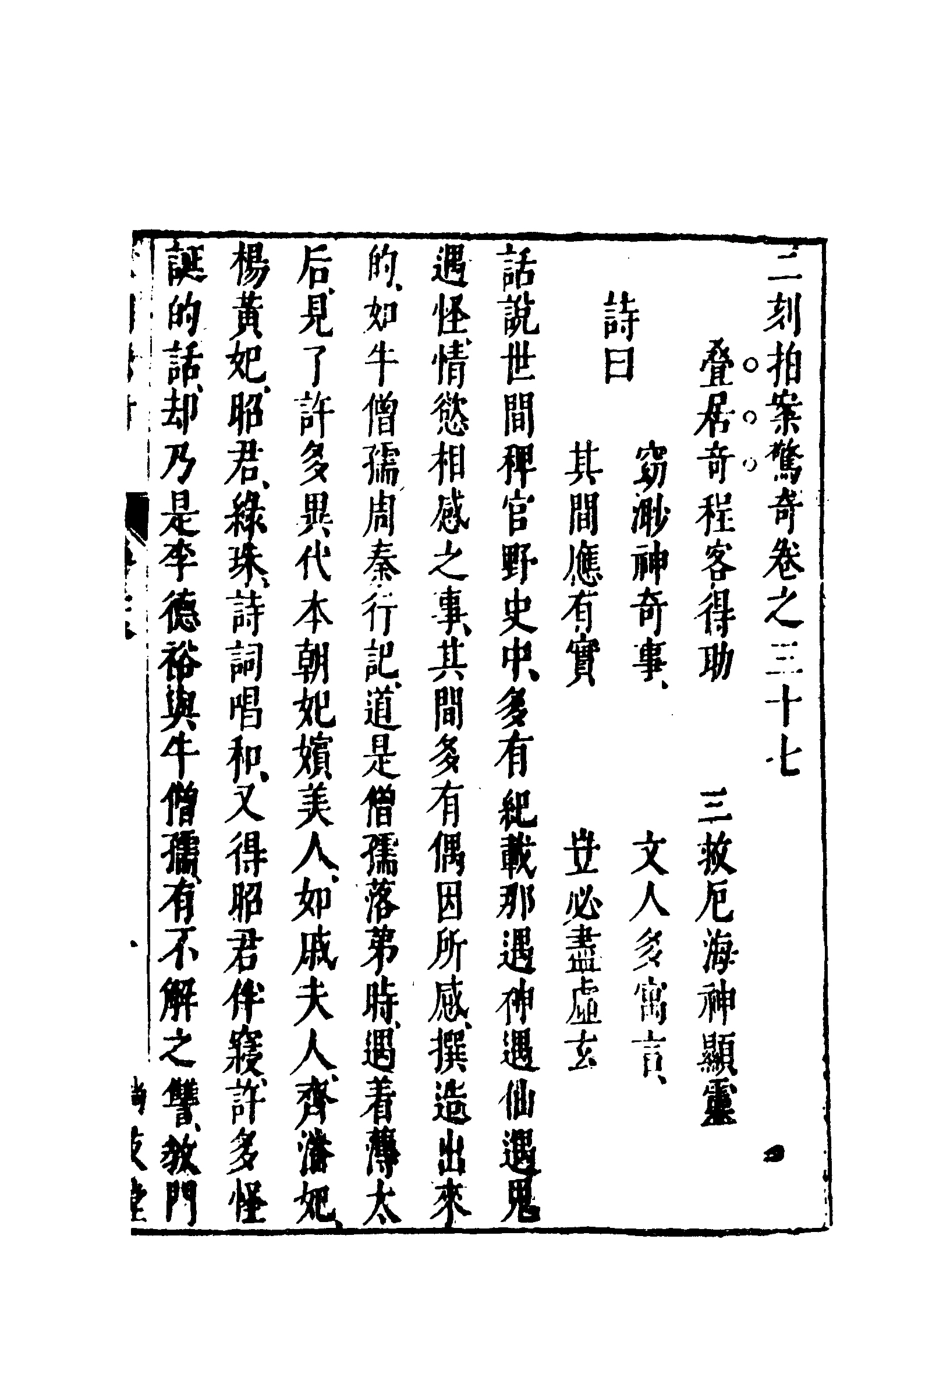 二刻拍案驚奇卷之三十七
叠居奇程客得助　三救厄海神顯靈
詩曰
窈渺神奇事、　文人多寓言、
其間應有實　豈必盡虛玄
話說世間稗官野史中、多有紀載那遇神遇仙遇鬼
遇怪、情慾相感之事、其間多有偶因所感、撰造出來
的、如牛僧孺周秦行記、道是僧孺落第時、遇着薄太
后、見了許多異代本朝妃嬪美人、如戚夫人、齊潘妃、
楊貴妃、昭君、綠珠、詩詞唱和、又得昭君伴寢、許多怪
誕的話、却乃是李德裕與牛僧孺、有不解之讐、教門
尚友堂